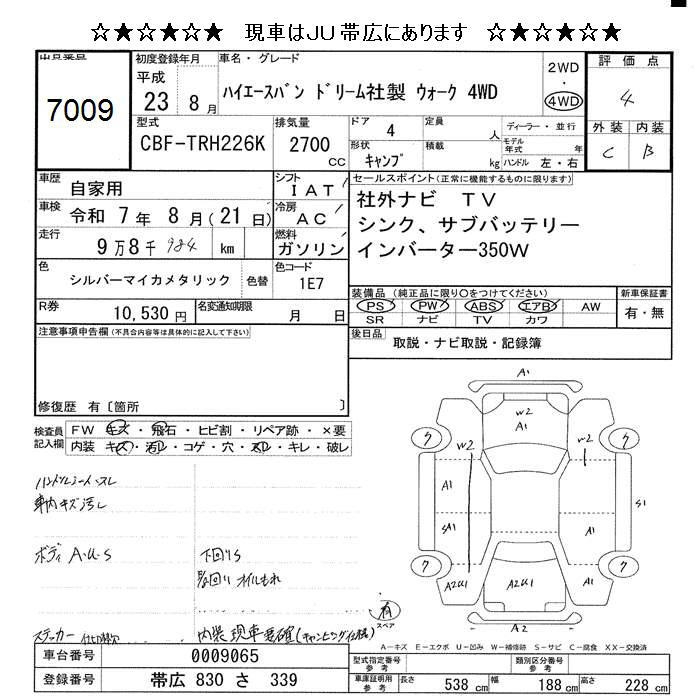 ☆★☆★☆★ 現車はJU帯広にあります ☆★☆★☆★
出品番号
7009
初度登録年月
平成
23年 8月
車名・グレード
ハイエースバン ドリーム社製 ウォーク 4WD
2WD
・
4WD
評価点
4
外装 内装
C B
型式
CBF-TRH226K
排気量
2700
cc
ドア
4
定員
人
形状
キャンプ
積載
kg
ディーラー・並行
モデル年式 年
ハンドル 左・右
車歴
自家用
シフト
IAT
車検
令和 7年 8月(21日)
冷房
AC
走行
9万8千984 km
燃料
ガソリン
セールスポイント(正常に機能するものに限ります)
社外ナビ TV
シンク、サブバッテリー
インバーター350W
色
シルバーマイカメタリック
色替
色コード
1E7
R券
10,530円
名変通知期限
月 日
装備品(純正品に限り○をつけてください)
PS PW ABS エアB AW
SR ナビ TV カワ
新車保証書
有・無
注意事項申告欄(不具合内容等は具体的に記入して下さい)
後日品
取説・ナビ取説・記録簿
修復歴 有〔箇所 〕
検査員記入欄
FW キズ・飛石・ヒビ割・リペア跡・×要
内装 キズ・汚レ・コゲ・穴・スレ・キレ・破レ
ハンドルシートスレ
車内キズ汚レ
ボディ A・U・S
下回りS
オイルもれ
ステッカー
内装現車要確(キャンピング仕様)
A1
W2
A1
ク
ク
W2
W2
A1
A1
S1
SA1
A1
ク
ク
A2U1
A2U1
A2U1
有
スペア
A2
A-キズ E-エクボ U-凹み W-補修跡 S-サビ C-腐食 XX-交換済
車台番号
0009065
登録番号
帯広 830 さ 339
型式指定番号
参考
類別区分番号
参考
車庫証明用
参考
長さ
538 cm
幅
188 cm
高さ
228 cm